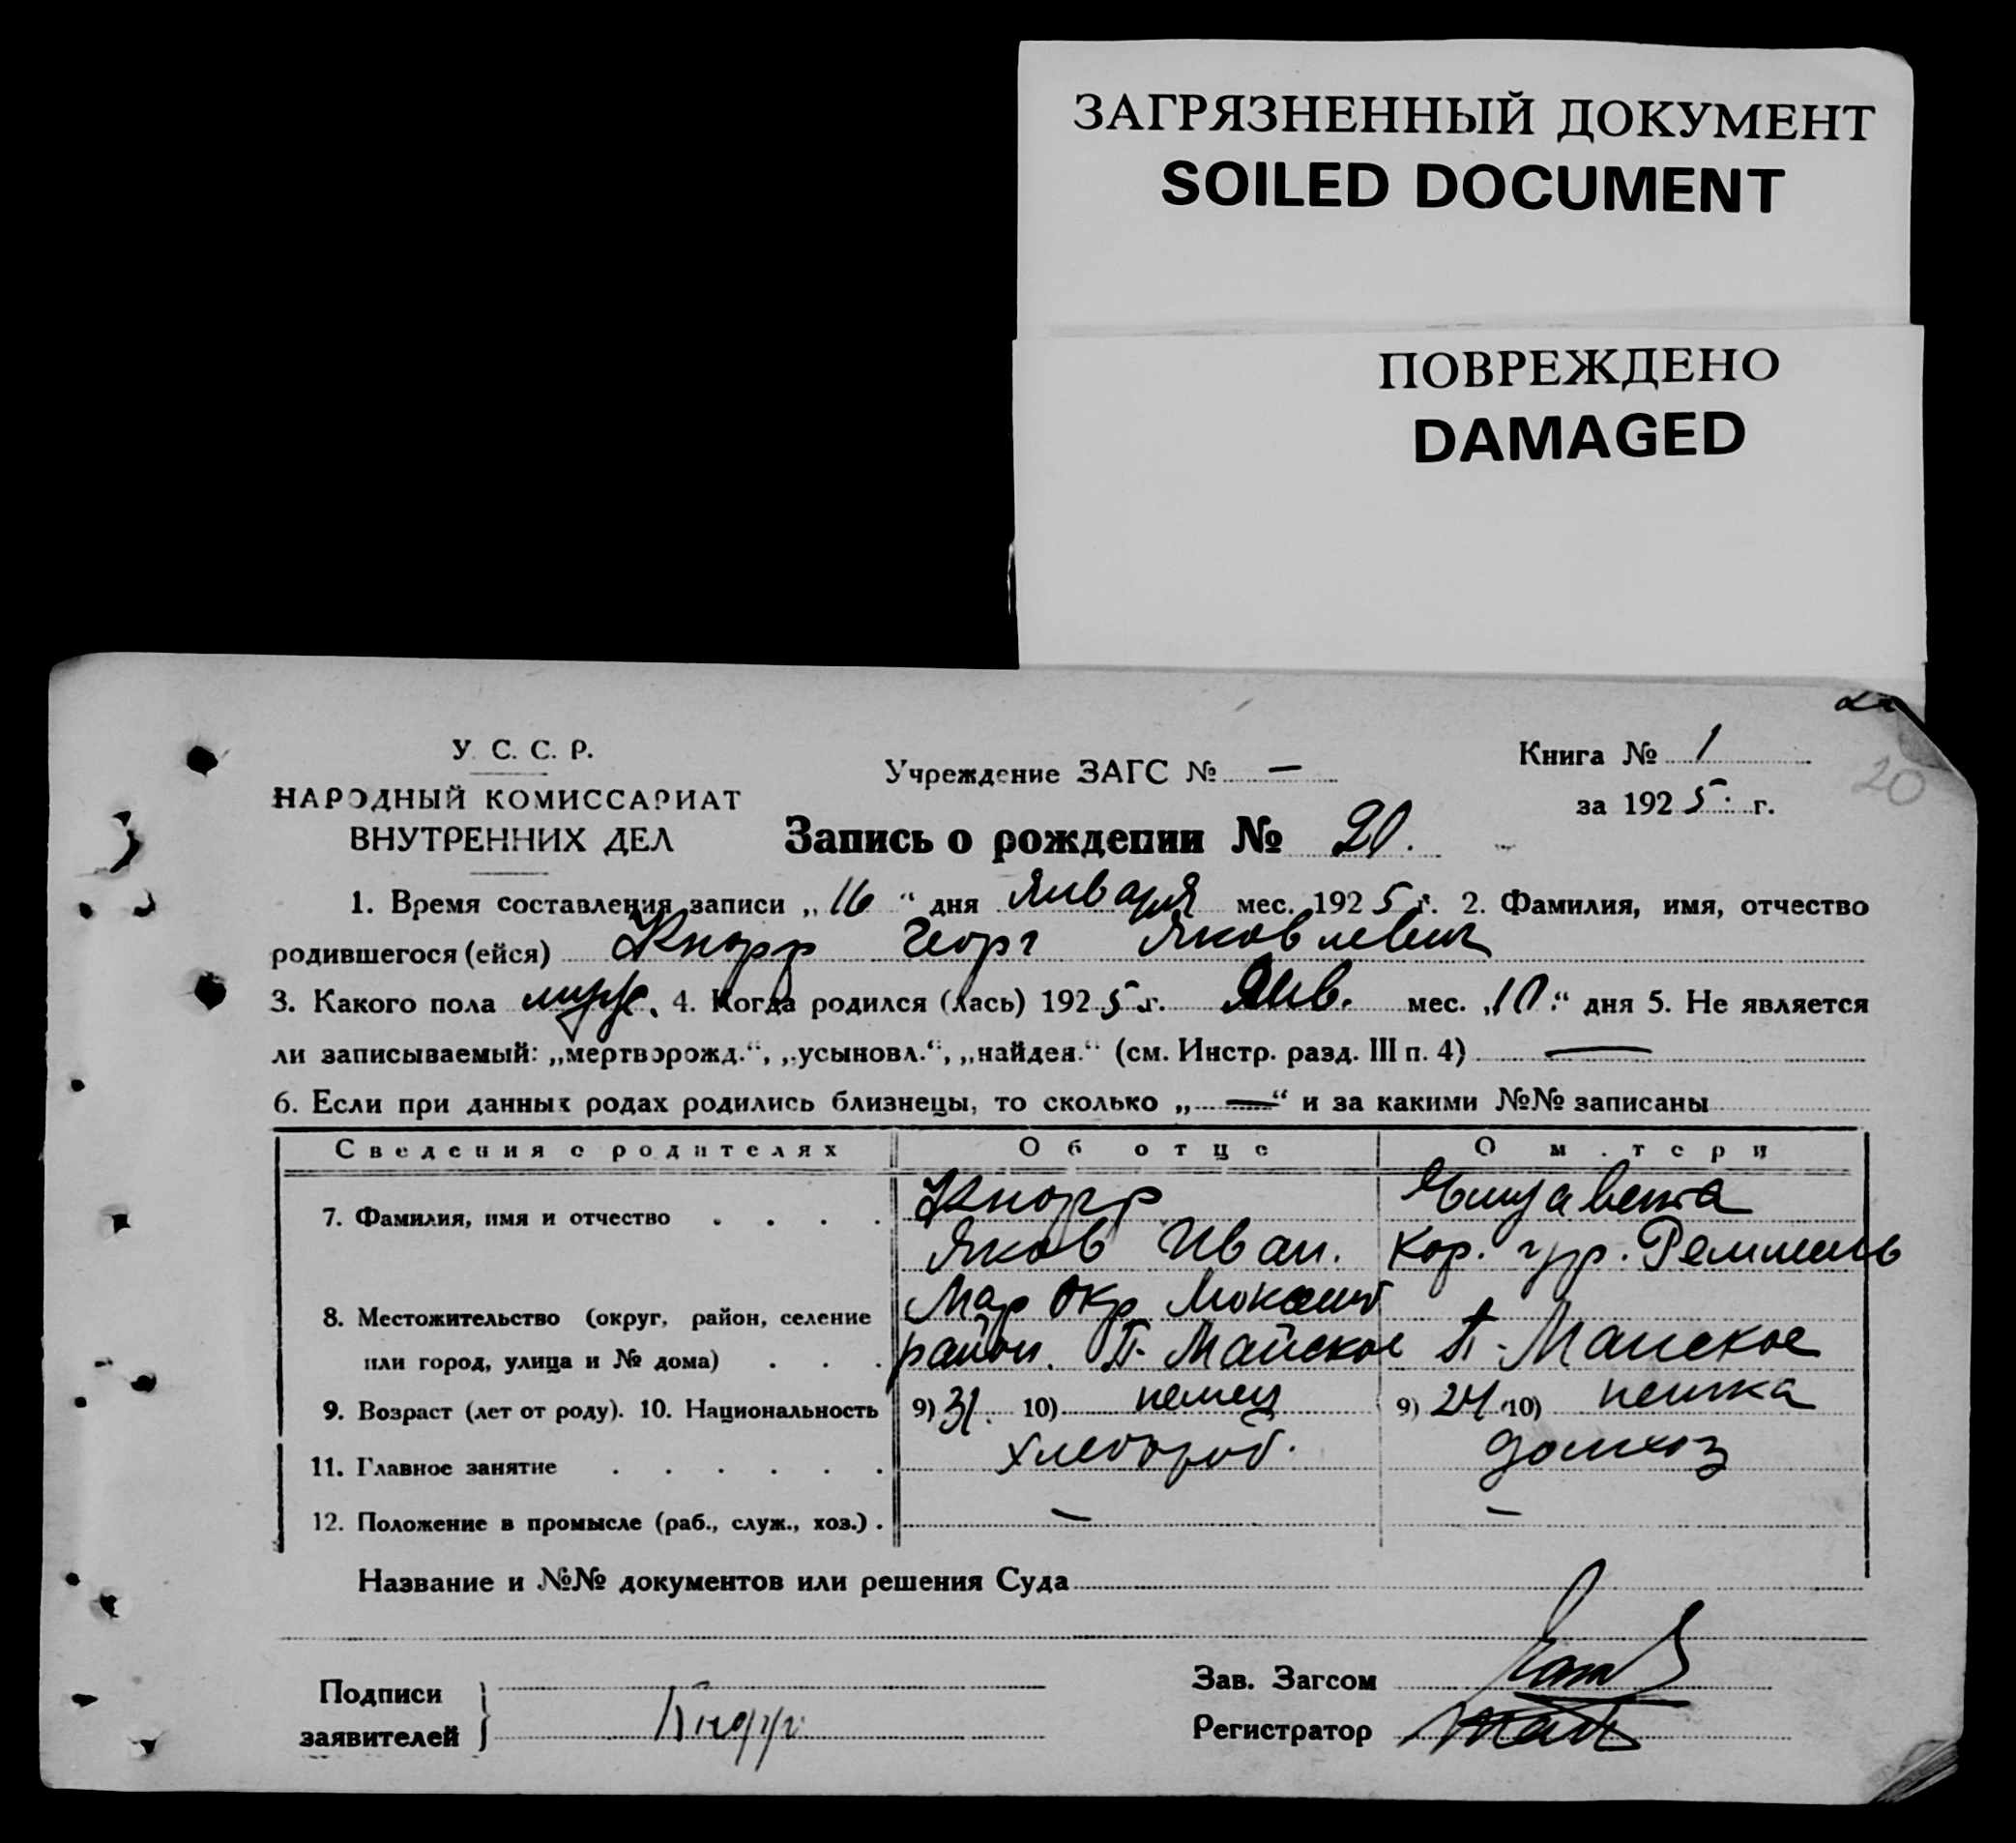 ЗАГРЯЗНЕННЫЙ ДОКУМЕНТ
SOILED DOCUMENT
ПОВРЕЖДЕНО
DAMAGED
У. С. С. Р.
НАРОДНЫЙ КОМИССАРИАТ
ВНУТРЕННИХ ДЕЛ
Учреждение ЗАГС № —
Книга № 1
за 1925 г.
20
Запись о рождении № 20.
1. Время составления записи „16“ дня Января мес. 1925 г. 2. Фамилия, имя, отчество
родившегося (ейся) Кнорр Георг Яковлевич
3. Какого пола муж. 4. Когда родился (лась) 1925 г. Янв. мес. „10“ дня 5. Не является
ли записываемый: „мертворожд.“, „усыновл.“, „найден.“ (см. Инстр. разд. III п. 4) —
6. Если при данных родах родились близнецы, то сколько „—“ и за какими №№ записаны
Сведения о родителях Об отце О м.тери
7. Фамилия, имя и отчество Кнорр Елизавета
Яков Иван. Кор. гр.
8. Местожительство (округ, район, селение Мар Окр
или город, улица и № дома) район. П. Майское П. Майское
9. Возраст (лет от роду). 10. Национальность 9) 31. 10) немец 9) 24 10) немка
11. Главное занятие хлебороб. домхоз
12. Положение в промысле (раб., служ., хоз.) — —
Название и №№ документов или решения Суда
Подписи
заявителей Кнорр
Зав. Загсом
Регистратор